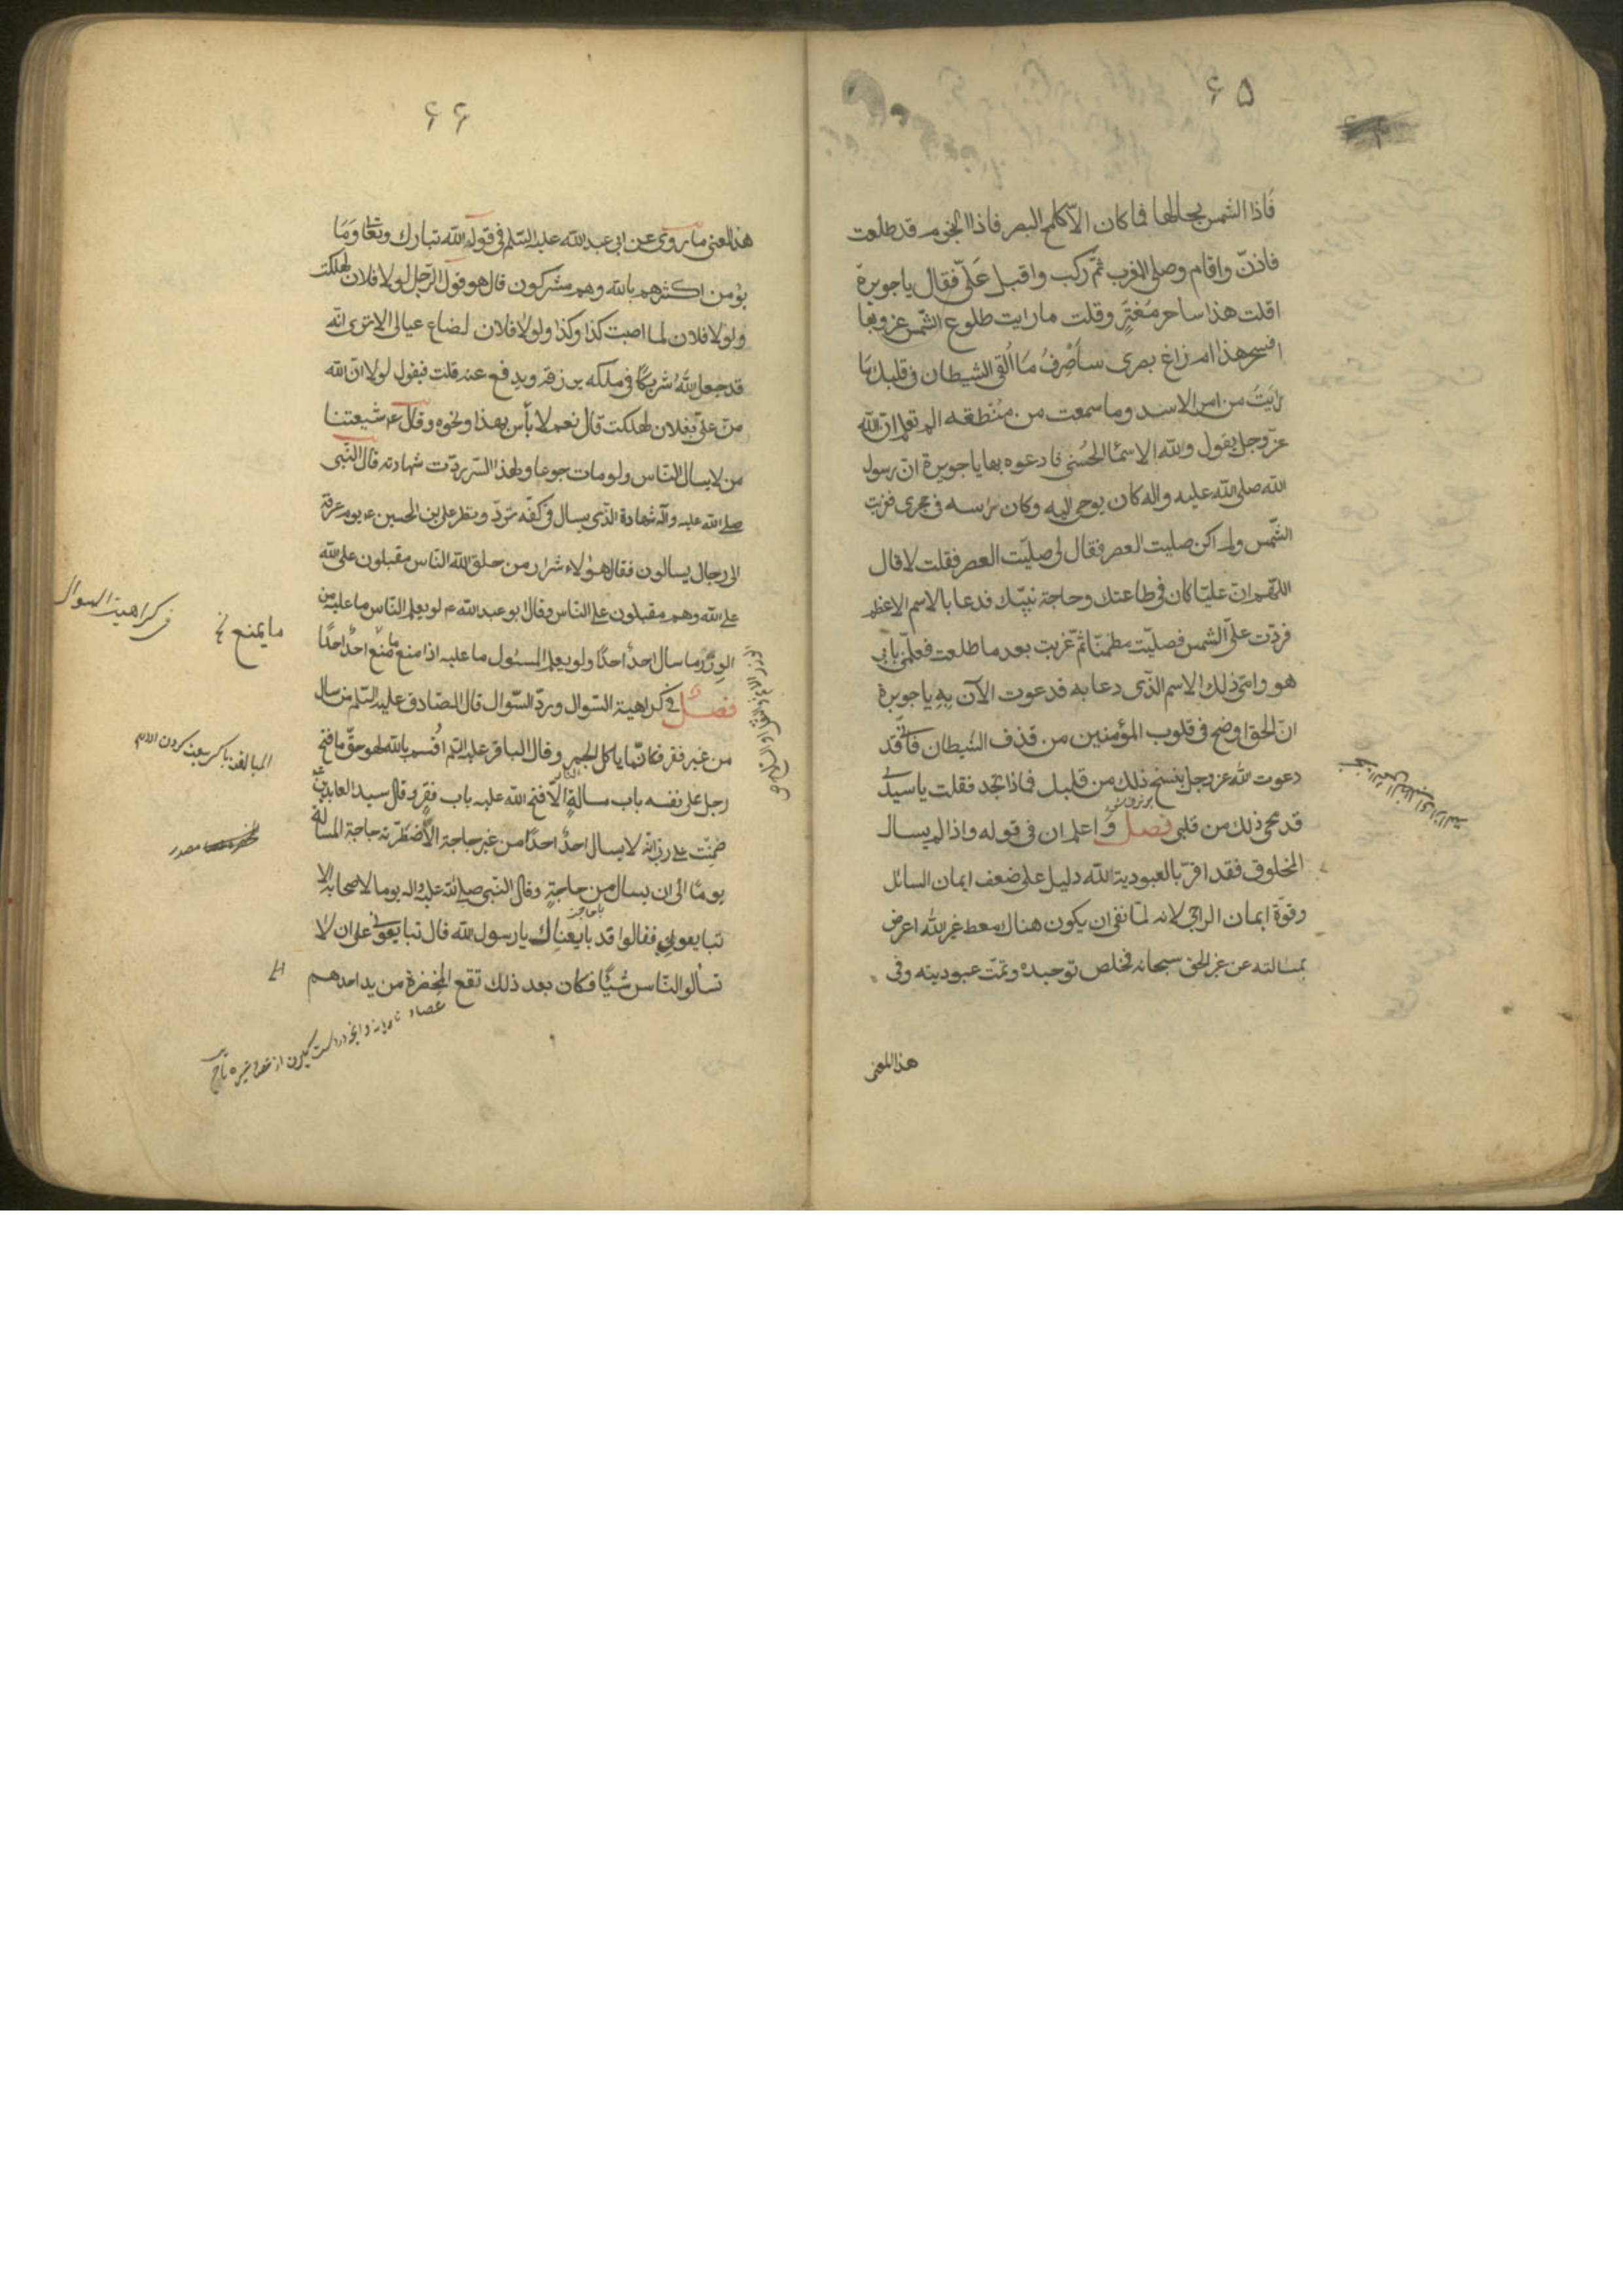 ۶۵
فاذا الشمس بحالها فما كان الا كلمح البصر فاذا النجوم قد طلعت
فاذن واقام وصلى المغرب ثم ركب واقبل علىّ فقال يا جويرة
اقلت هذا ساحر مفتر وقلت ما رايت طلوع الشمس وغروبها
افسحر هذا ام زاغ بصرى سأصرف ما القى الشيطان فى قلبك ما
رايت من امر الاسد وما سمعت من منطقه الم تعلم ان الله
عز وجل يقول ولله الاسماء الحسنى فادعوه بها يا جويرة ان رسول
الله صلى الله عليه واله كان يوحى اليه وكان رأسه فى حجرى فغربت
الشمس ولم اكن صليت العصر فقال لى صليت العصر فقلت لا قال
اللهم ان عليا كان فى طاعتك وحاجة نبيك فدعا بالاسم الاعظم
فردت علىّ الشمس فصليت مطمئنا ثم غربت بعد ما طلعت فعلمنى بابى
هو وامى ذلك الاسم الذى دعا به فدعوت الآن به يا جويرة
ان الحق اوضح فى قلوب المؤمنين من قذف الشيطان فانى قد
دعوت الله عز وجل بنسخ ذلك من قلبك فماذا تجد فقلت يا سيدى
قد محى ذلك من قلبى فصل واعلم ان فى قوله واذا لم يسال
المخلوق فقد اقر بالعبودية لله دليل على ضعف ايمان السائل
وقوة ايمان الراجى لانه لما نفى ان يكون هناك معط غير الله اعرض
بمسالته عن غير الحق سبحانه فخلص توحيده وتمت عبوديته وفى
هذا المعنى
۶۶
هذا المعنى ما روى عن ابى عبد الله عليه السلم فى قول الله تبارك وتعالى وما
يؤمن اكثرهم بالله وهم مشركون قال هو قول الرجل لولا فلان لهلكت
ولولا فلان لما اصبت كذا وكذا ولولا فلان لضاع عيالى الا ترى انه
قد جعل لله شريكا فى ملكه يرزقه ويدفع عنه قلت فيقول لولا ان الله
منّ علىّ بفلان لهلكت قال نعم لا بأس بهذا ونحوه وقال ع شيعتنا
من لا يسال الناس ولو مات جوعا ولهذا السر ردت شهادته قال النبى
صلى الله عليه وآله شهادة الذى يسال فى كفه ترد ونظر على بن الحسين ع يوم عرفة
الى رجال يسالون فقال هؤلاء شرار من خلق الله الناس مقبلون على الله
على الله وهم مقبلون على الناس وقال ابو عبد الله ع لو يعلم الناس ما عليه من
الوزر ما سال احد احدا ولو يعلم المسئول ما عليه اذا منع ما منع احد احدا
فى كراهية السوال
ما يمنع خ
فصل فى كراهية السؤال ورد السؤال قال الصادق عليه السلم من سال
من غير فقر فكانما ياكل الجمر وقال الباقر عليه السلم اقسم بالله لهو حق ما فتح
رجل على نفسه باب مسالة الا فتح الله عليه باب فقر وقال سيد العابدين
ضمنت على ربى انه لا يسال احد احدا من غير حاجة الا اضطرته حاجة المسالة
مصدر
يوما الى ان يسال من حاجة وقال النبى صلى الله عليه واله يوما لاصحابه الا
تبايعونى فقالوا قد بايعناك يا رسول الله قال تبايعونى على ان لا
تسألوا الناس شيئا فكان بعد ذلك تقع المخصرة من يد احدهم